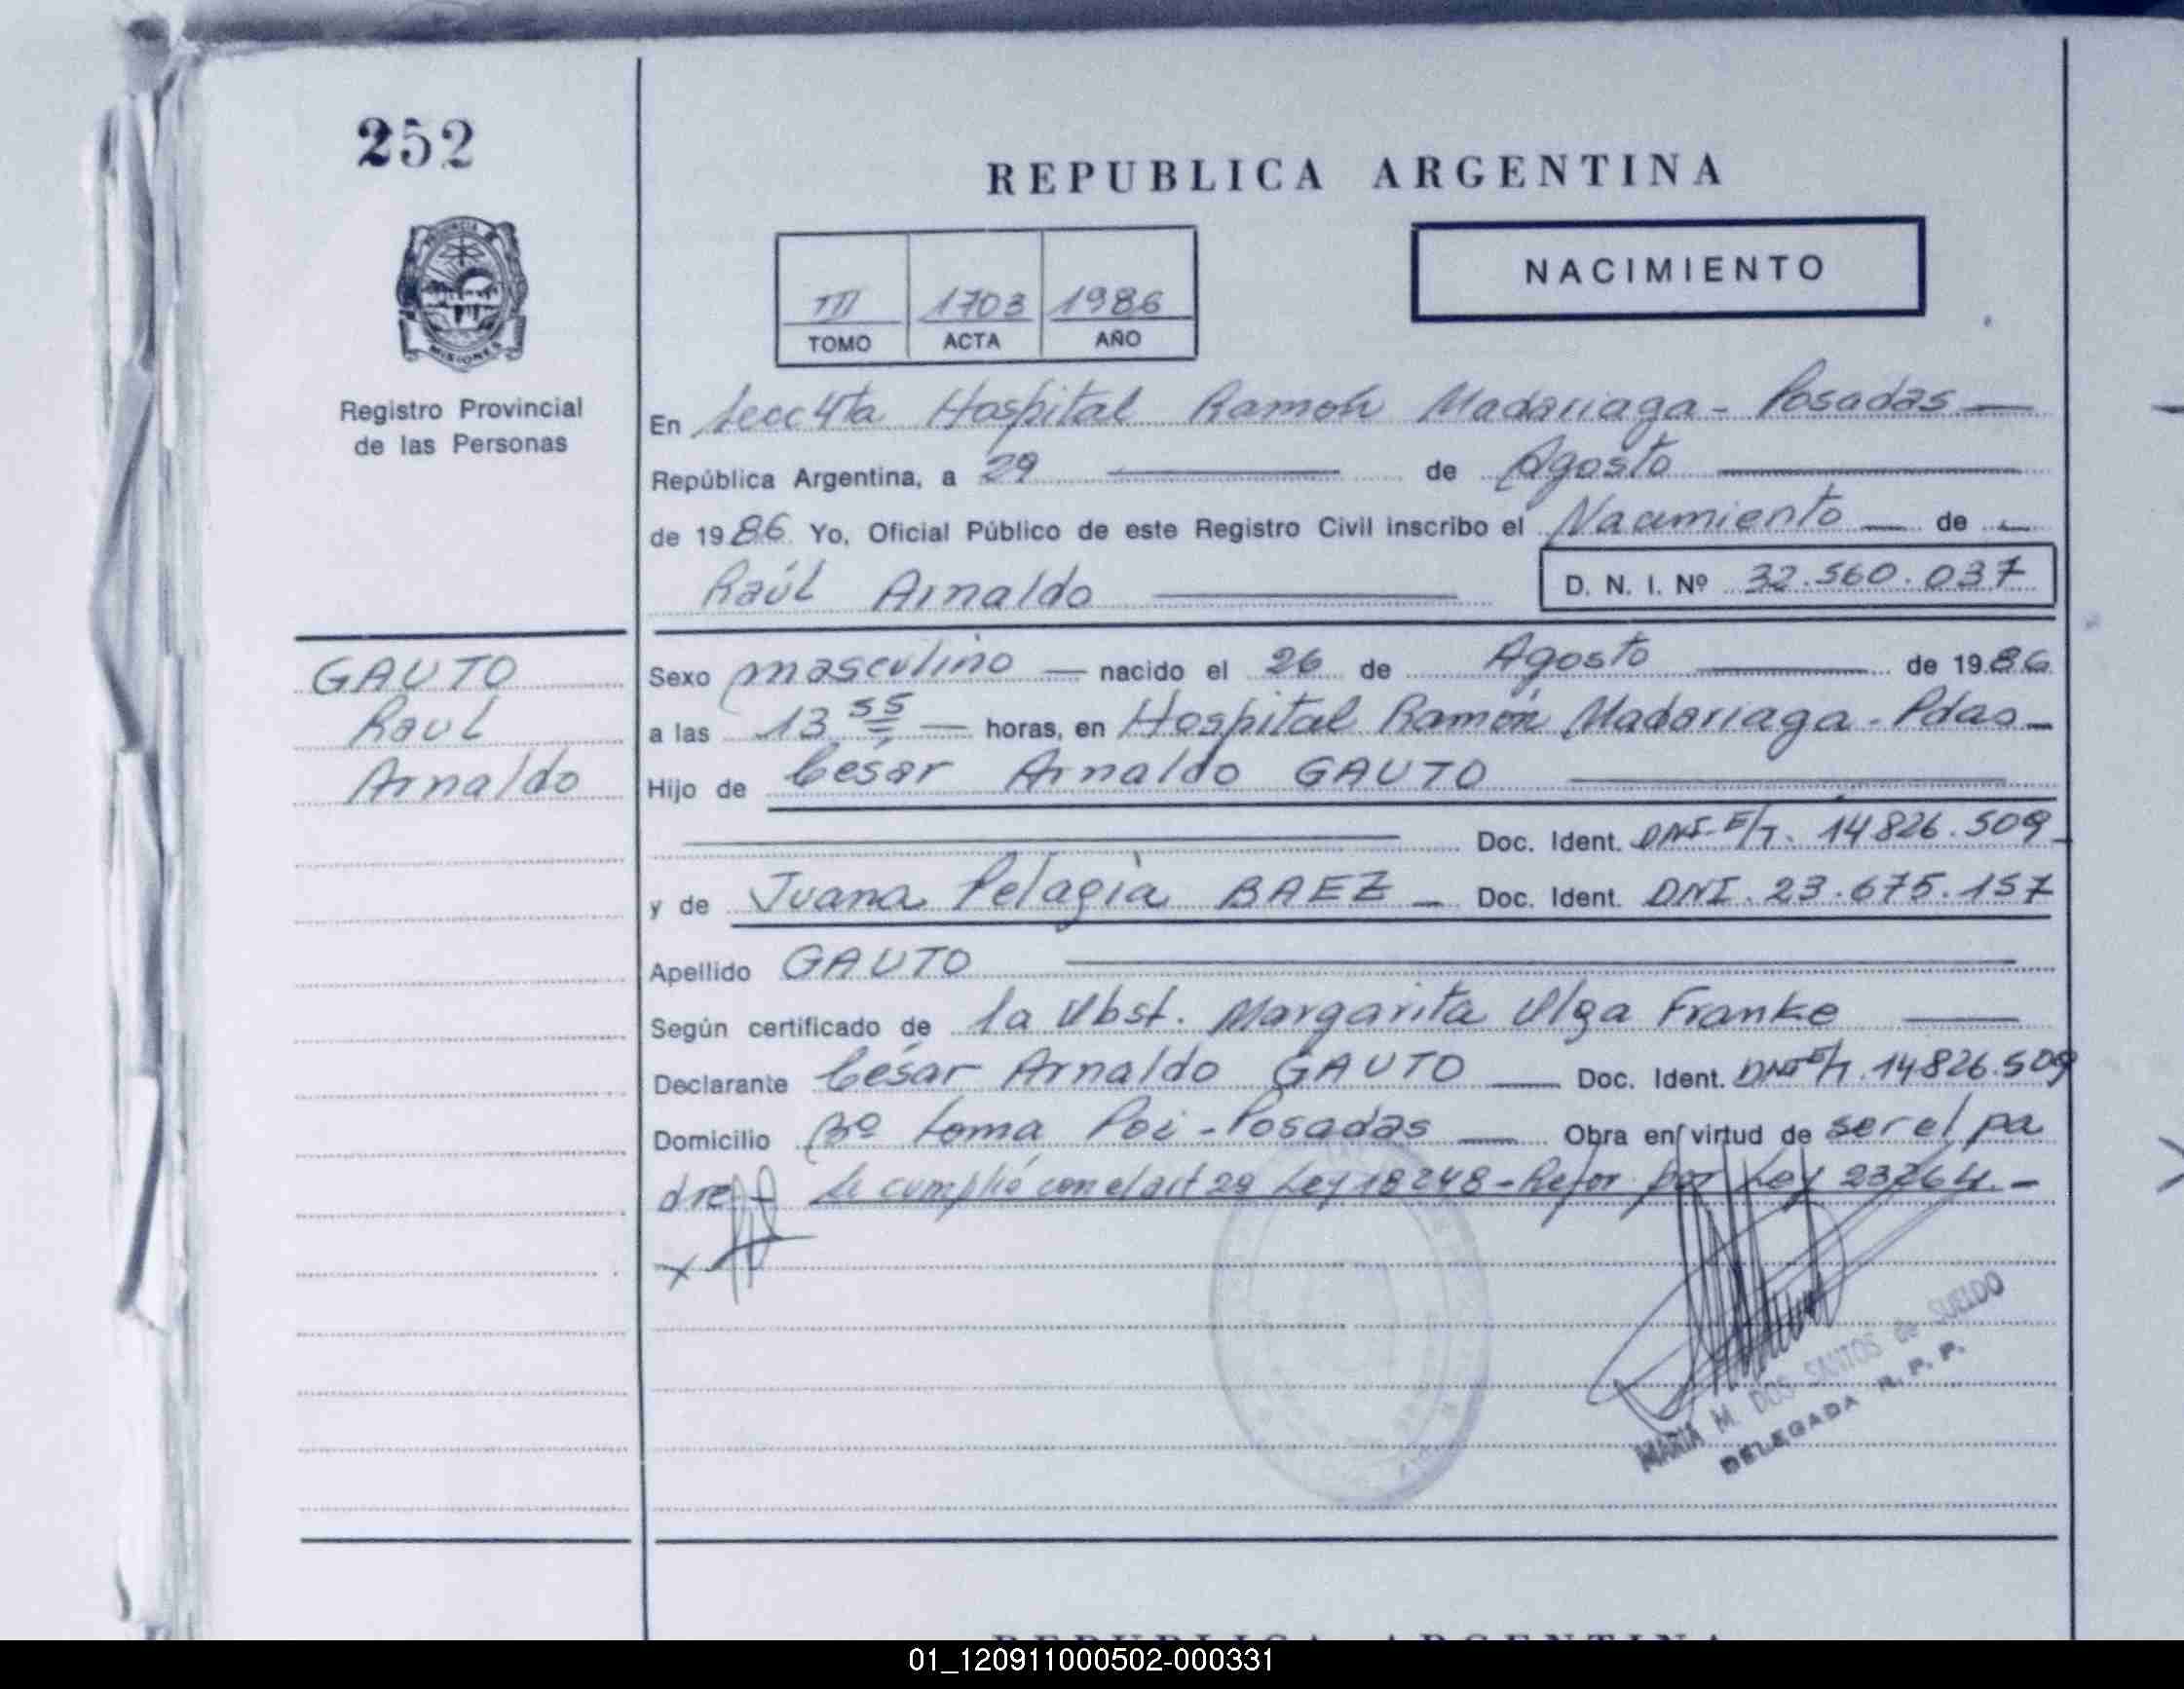 252
REPUBLICA ARGENTINA
PROVINCIA DE
MISIONES
Registro Provincial
de las Personas
III 1703 1986
TOMO ACTA AÑO
NACIMIENTO
En Secc 4ta Hospital Ramón Madariaga - Posadas —
República Argentina, a 29 — de Agosto —
de 1986 Yo, Oficial Público de este Registro Civil inscribo el Nacimiento — de —
Raúl Arnaldo —
D. N. I. Nº 32.560.037
GAUTO
Raul
Arnaldo
Sexo masculino — nacido el 26 de Agosto — de 1986
a las 13 55 — horas, en Hospital Ramón Madariaga - Pdas —
Hijo de César Arnaldo GAUTO —
— Doc. Ident. DNI - E/T. 14.826.509 -
y de Juana Pelagia BAEZ — Doc. Ident. DNI. 23.675.157
Apellido GAUTO —
Según certificado de la Obst. Margarita Olga Franke —
Declarante César Arnaldo GAUTO — Doc. Ident. DNI E/T. 14.826.509
Domicilio Bº Loma Poi - Posadas — Obra en virtud de ser el pa
dre - Se cumplió con el art 29 Ley 18248 - Refor por Ley 23264. -
x
MARIA M. DOS SANTOS de SUELDO
DELEGADA R. P. P.
REPUBLICA ARGENTINA
01_120911000502-000331